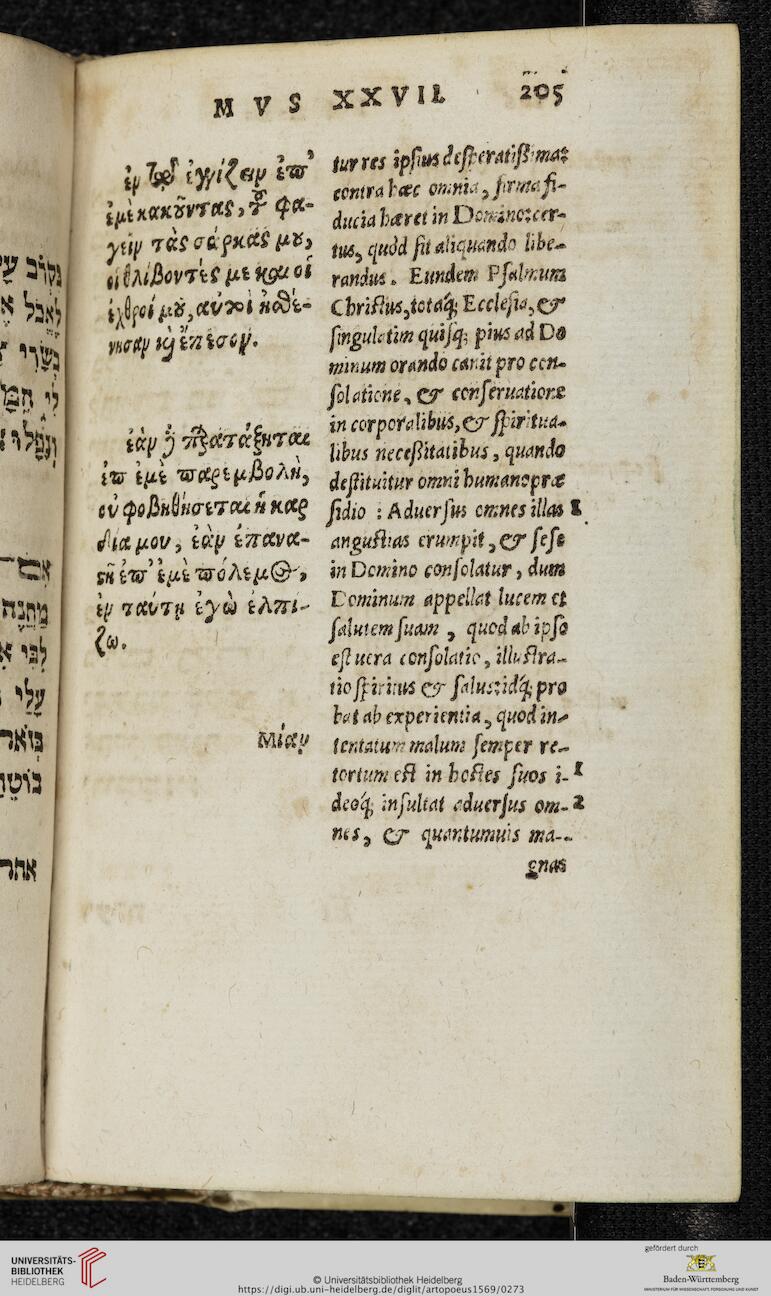 MVS XXVII. 205
ἐν τῷ ἐγγίζειν ἐπ'
ἐμὲ κακοῦντας, τοῦ φα-
γεῖν τὰς σάρκάς μου,
οἱ θλίβοντές με καὶ οἱ
ἐχθροί μου, αὐτοὶ ἠσθέ-
νησαν καὶ ἔπεσον.
ἐὰν παρατάξηται
ἐπ' ἐμὲ παρεμβολὴ,
οὐ φοβηθήσεται ἡ καρ
δία μου, ἐὰν ἐπανα-
στῇ ἐπ' ἐμὲ πόλεμος,
ἐν ταύτῃ ἐγὼ ἐλπί-
ζω.
Μίαν
tur res ipsius desperatißimaꝫ
contra hæc omnia, firma fi-
ducia hæret in Domino: cer-
tus, quòd sit aliquando libe-
randus. Eundem Psalmum
Christus, totaq́; Ecclesia, &
singulatim quisq; pius ad Do
minum orando canit pro con-
solatione, & conseruatione
in corporalibus, & spiritua-
libus neceßitatibus, quando
destituitur omni humano præ
sidio : Aduersus omnes illas
angustias erumpit, & sese
in Domino consolatur, dum
Dominum appellat lucem et
salutem suam, quod ab ipso
est uera consolatio, illustra-
tio spiritus & salus: idq́; pro
bat ab experientia, quod in-
tentatum malum semper re-
tortum est in hostes suos i- 1
deoq́; insultat aduersus om- 2
nes, & quantumuis ma-
gnas
נְקוֹב
לֶאֱכֹל
בְּשָׂרִי
לִי
עָלַי
UNIVERSITÄTS-
BIBLIOTHEK
HEIDELBERG
© Universitätsbibliothek Heidelberg
https://digi.ub.uni-heidelberg.de/diglit/artopoeus1569/0273
gefördert durch
Baden-Württemberg
MINISTERIUM FÜR WISSENSCHAFT, FORSCHUNG UND KUNST